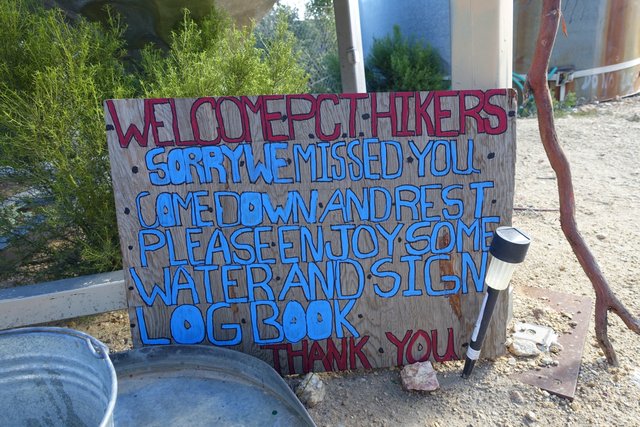 WELCOME PCT HIKERS
SORRY WE MISSED YOU
COME DOWN AND REST
PLEASE ENJOY SOME
WATER AND SIGN
LOG BOOK
THANK YOU